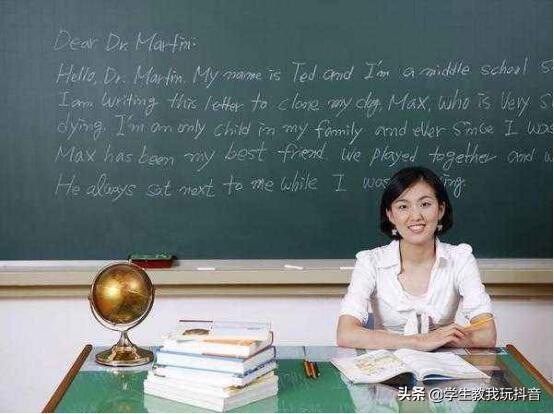 Dear Dr. Martin:
Hello, Dr. Martin. My name is Ted and I'm a middle school s
I am writing this letter to clone my dog, Max, who is very s
dying. I'm an only child in my family and ever since I was
Max has been my best friend. we played together and w
He always sat next to me while I was ing.
头条 @学生教我玩抖音